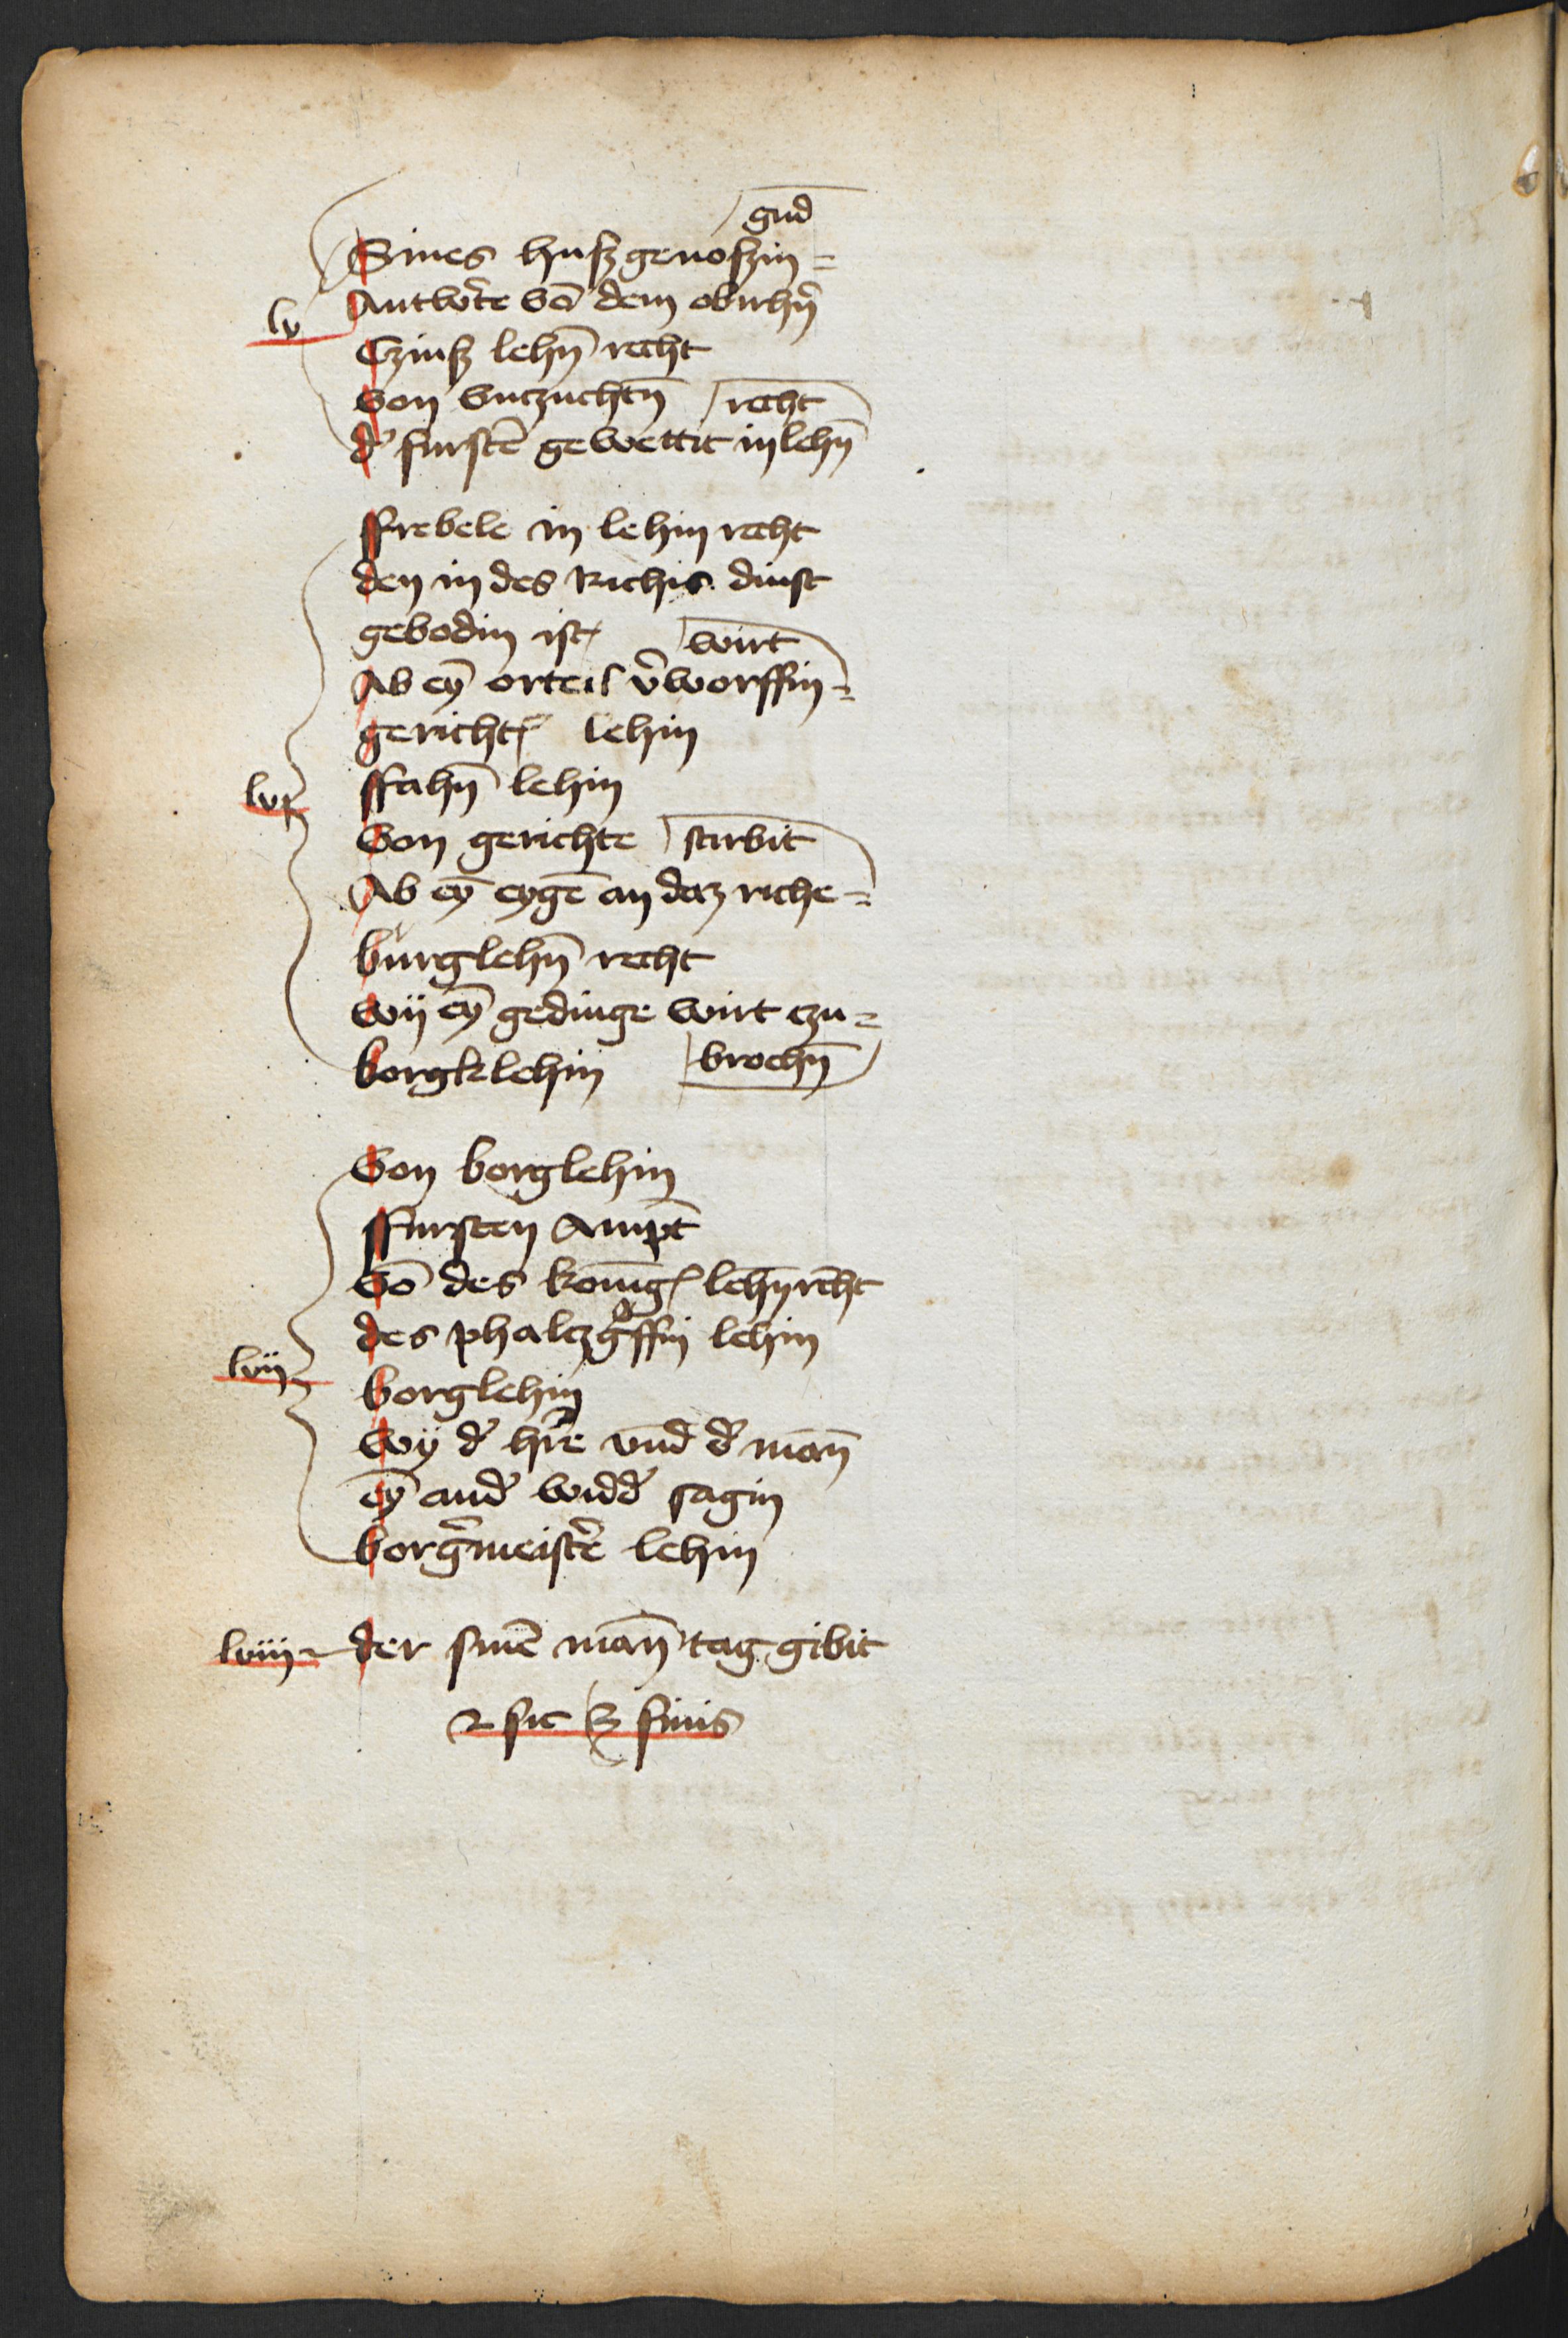 gud
Sines huſzgenoſzin =
lv
Antw̉te vō dem obirhn̄
Czinſz lehn̄ recht
Von vnczuchtn̄ recht
d' furſtē gewettit in lehn̄
ffrebele in lehin recht
den in des Richis dinſt
gebodin iſt wirt
Ab eȳ orteil v̉worffin =
gericht lehin
lvi
ffahn̄ lehin
Von gerichte ſtirbit
Ab eȳ eygē an daz riche =
burglehn̄ recht
wij eȳ gedinge wirt czu =
borgklehin brochn̄
Von borglehin
ffurſten Ampt
Vō des konīg lehn̄recht
des phalczgᵃffin lehin
lvii
borglehin
Wy d' hr̄e vnd d' man̄
eȳ and' widd' ſagin
borgm̉eiſt̉e lehin
lviii der ſinē man̄ tag gibit
⁊ ſic ē finis